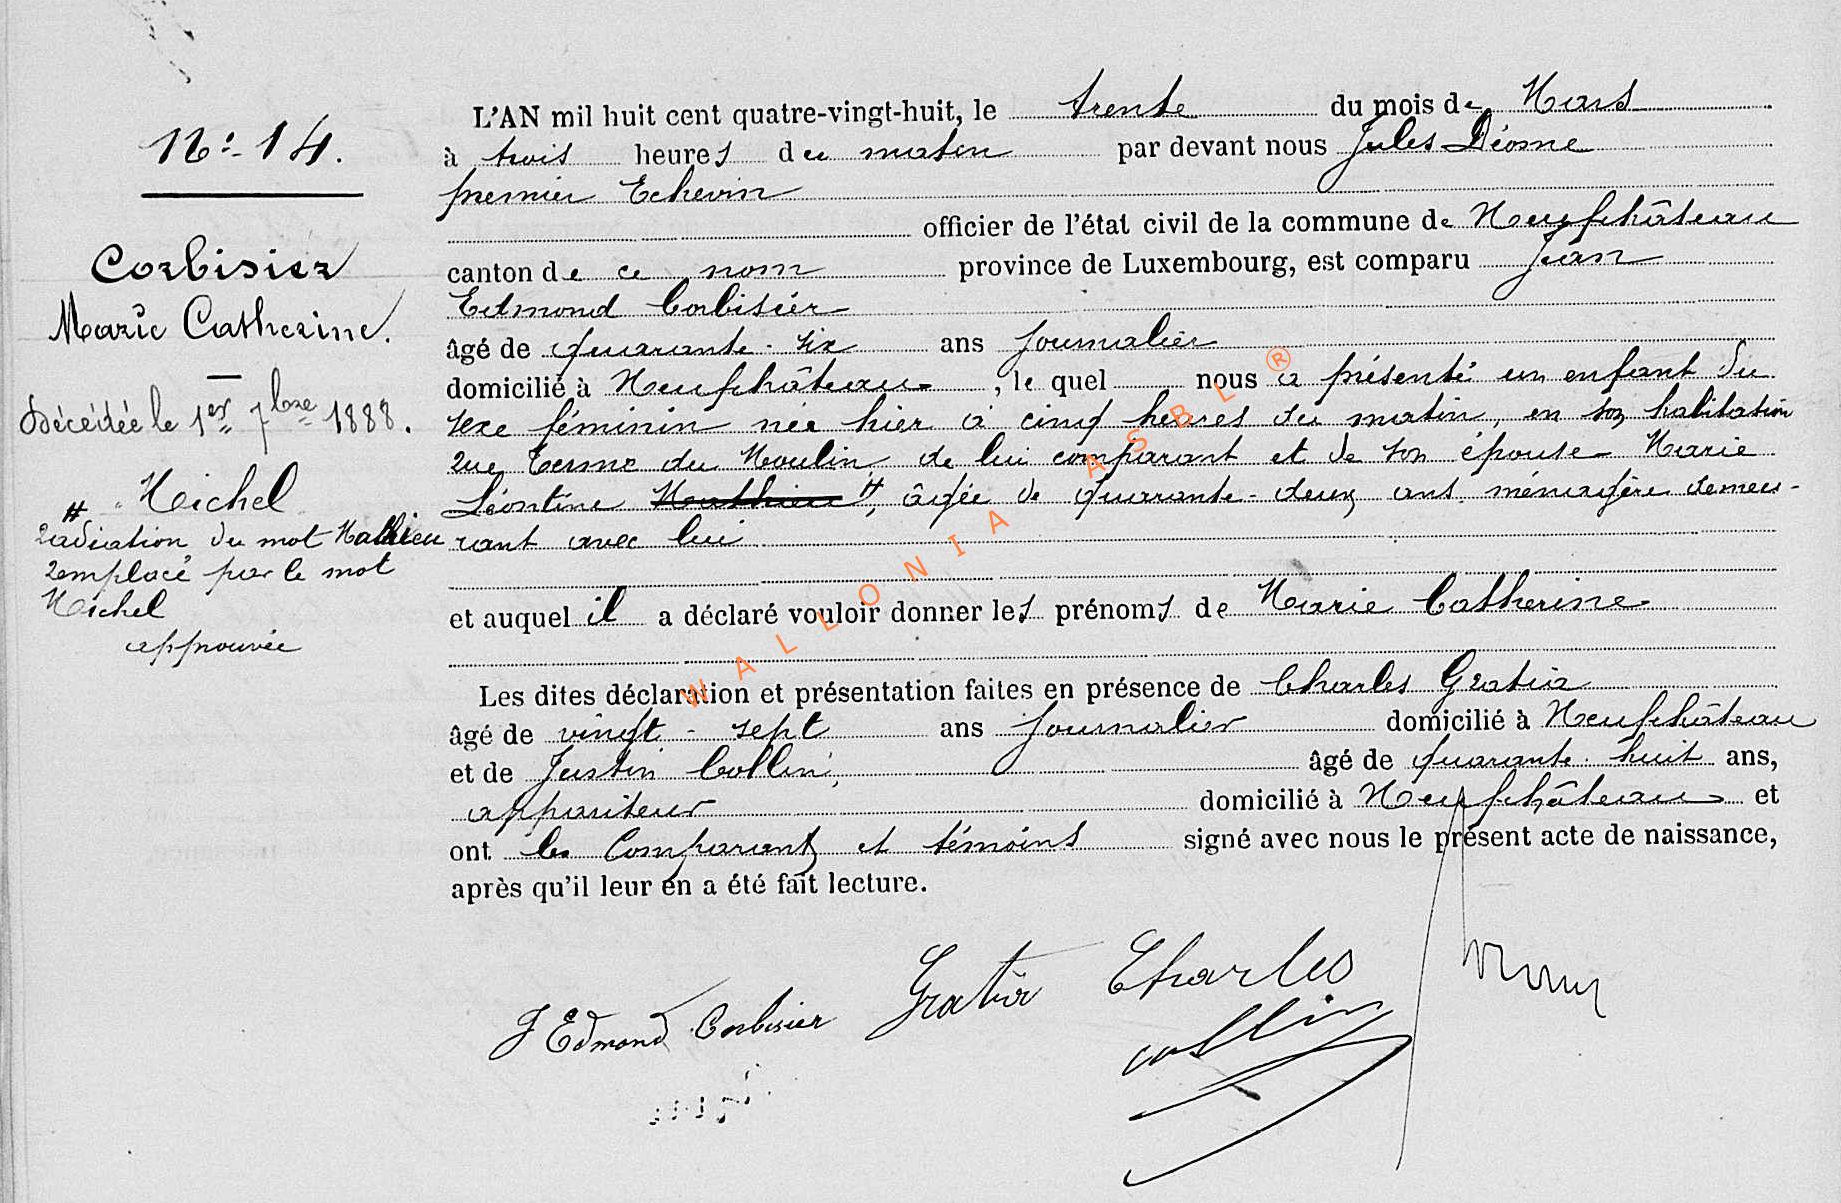 N° 14.
Corbisier
Marie Catherine.
Décédée le 1er 7bre 1888.
# Michel
Radiation du mot Mathieu
remplacé par le mot
Michel
approuvée
L'AN mil huit cent quatre-vingt-huit, le trente du mois de Mars
à trois heures du matin par devant nous Jules Diome
premier Echevin
officier de l'état civil de la commune de Neufchâteau
canton de ce nom province de Luxembourg, est comparu Jean
Edmond Corbisier
âgé de quarante-six ans journalier
domicilié à Neufchâteau, le quel nous a présenté un enfant du
sexe féminin née hier à cinq heures du matin, en son habitation
rue Terme du Moulin de lui comparant et de son épouse Marie
Léontine Mathieu #, âgée de quarante-deux ans ménagère demeu-
rant avec lui
et auquel il a déclaré vouloir donner les prénoms de Marie Catherine
Les dites déclaration et présentation faites en présence de Charles Gratia
âgé de vingt-sept ans journalier domicilié à Neufchâteau
et de Justin Collin, âgé de quarante-huit ans,
appariteur domicilié à Neufchâteau et
ont les Comparant et témoins signé avec nous le présent acte de naissance,
après qu'il leur en a été fait lecture.
J Edmond Corbisier Gratia Charles
Collin
WALLONIA ASBL ®